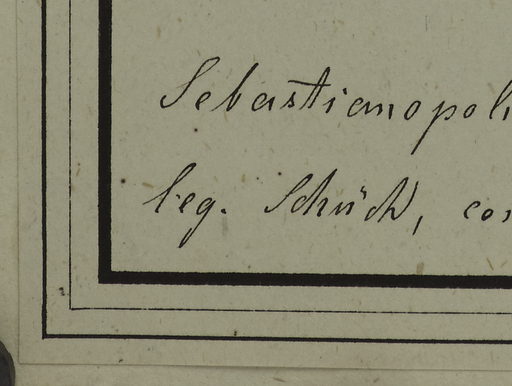 Sebastianopoli
leg. Schüch, com